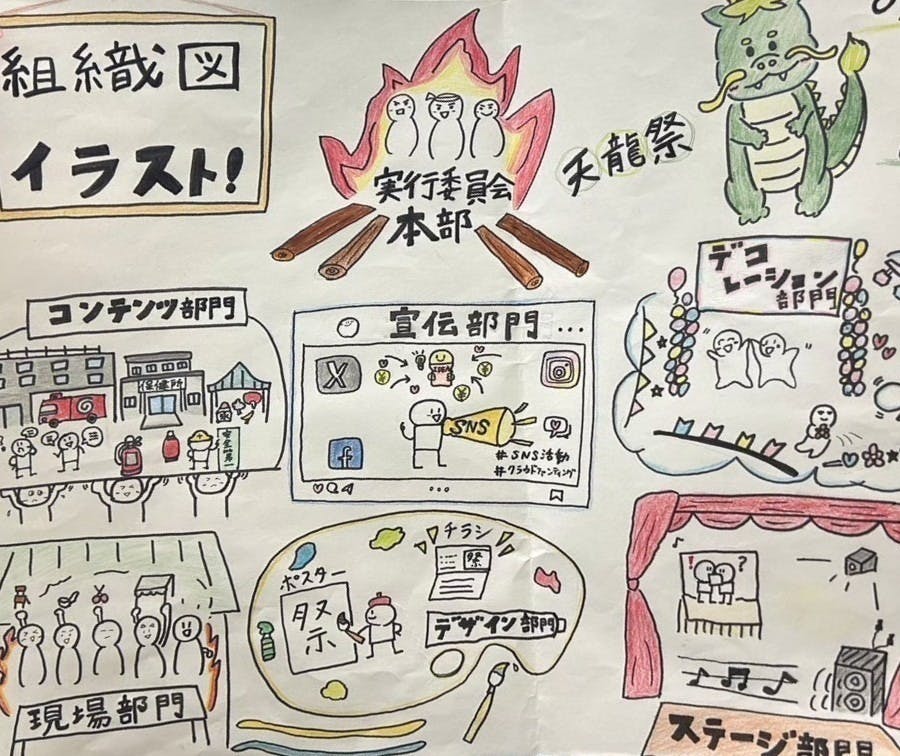 組織図
イラスト!
実行委員会
本部
天龍祭
コンテンツ部門
保健所
安全第一
宣伝部門 ...
X
IDEA
SNS
f
#SNS活動
#クラウドファンディング
デコ
レーション
部門
現場部門
ポスター
祭
チラシ
祭
デザイン部門
! ?
ステージ部門